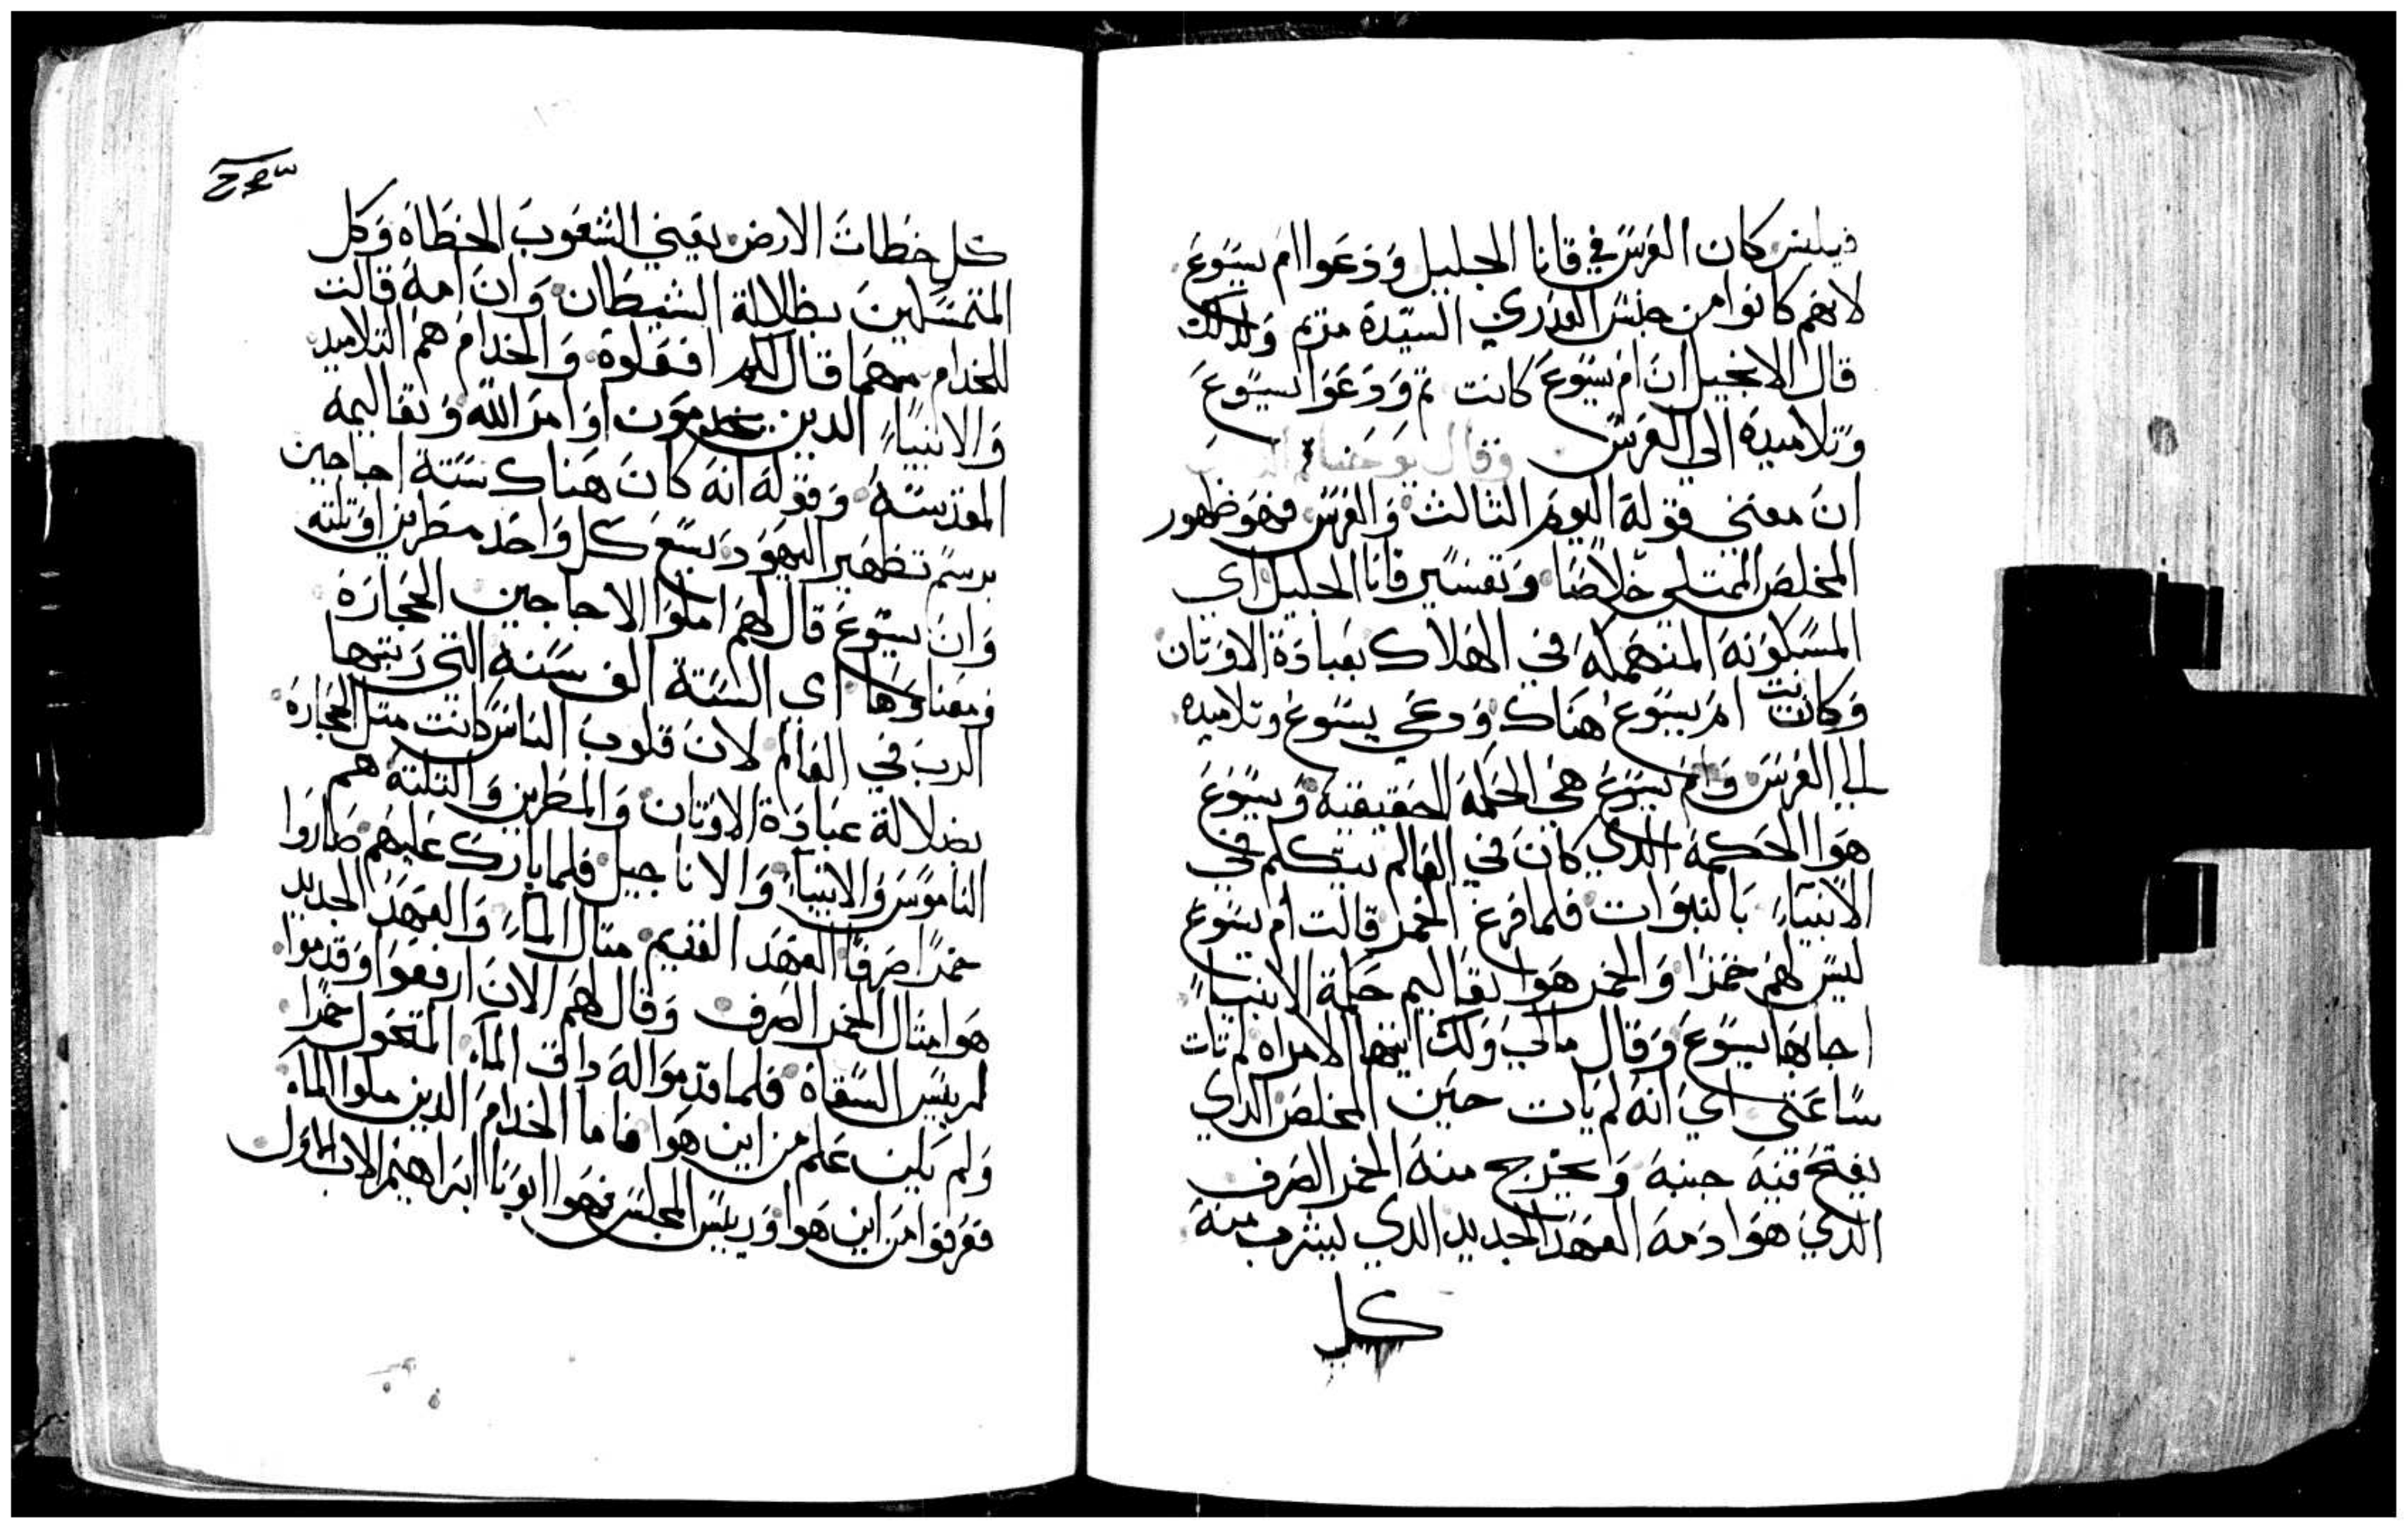 فيلبس كان العرس في قانا الجليل ودعوا ام يسوع
لانهم كانوا من جنس العدري السيدة مريم ولذلك
قال الانجيل ان ام يسوع كانت تم ودعوا يسوع
وتلاميده الي العرس وقال يوحنا
ان معني قوله اليوم التالت والعرس فهو ظهور
المخلص الممتلي خلاصا وتفسير قانا الجليل اي
المسكونه المنهمكه في الهلاك بعبادة الاوتان
وكانت ام يسوع هناك ودعي يسوع وتلاميده
الي العرس وام يسوع هي الحكمة الحقيقية ويسوع
هوا الحكمة الدي كان في العالم يتكلم في
الانبياء بالنبوات فلما فرغ الخمر قالت ام يسوع
ليس لهم خمرا والخمر هوا تعاليم حكمة الانبياء
اجابها يسوع وقال مالي ولك ايتها الامراه لم تات
ساعتي اي انه لم يات حين المخلص الداي
يفتح فيه جنبه ويخرج منه الخمر الصرف
الدي هوا دمه العهد الجديد الدي ليشرب منه
كل
كل خطات الارض يعني الشعوب الخطاه وكل
المتمسكين بظلالة الشيطان وان امه قالت
للخدام مهما قال لكم افعلوه والخدام هم التلاميد
والانبياء الدين يخدمون اوامر الله وتعاليمه
المقدسه وقوله انه كان هناك ستة اجاجين
برسم تطهير اليهود يسع كل واحد مطرين او تلته
وان يسوع قال لهم املوا الاجاجين الحجارة
ومعناوها اي الستة الف سنه التي رتبها
الرب في العالم لان قلوب الناس كانت متل الحجارة
بضلالة عبادة الاوتان والمطرين والتلته هم
الناموس والانبياء والاناجيل فلما بارك عليهم صاروا
خمرا صرفا العهد القديم متال الماء والعهد الجديد
هوا متال الخمر الصرف وقال لهم الان ارفعوا وقدموا
لرييس السقاة فلما قدموا له داق الماء المتحول خمرا
ولم يكن علم من اين هوا فاما الخدام الدين ملوا الماء
فعرفوا من اين هوا ورييس المجلس فهوا ابونا ابراهيم الاب الاول